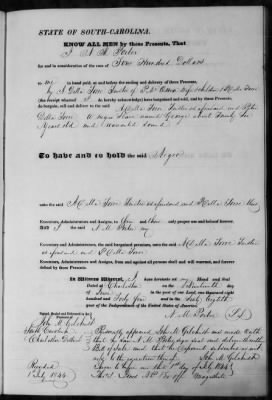 STATE OF SOUTH-CAROLINA.
KNOW ALL MEN by these Presents, That
I A. M. Porter
for and in consideration of the sum of Four Hundred Dollars
to me in hand paid, at and before the sealing and delivery of these Presents,
by A Della Torre Trustee of wife & children
(the receipt whereof I do hereby acknowledge) have bargained and sold, and by these Presents,
do bargain, sell and deliver to the said A Della Torre Trustee as aforesaid and
Della Torre A negro Slave named George about Twenty
years old and warranted sound
To have and to hold the said Negro
unto the said A Della Torre Trustee as aforesaid and Della Torre
Executors, Administrators and Assigns, to only proper use and behoof forever.
And I the said A. M. Porter my
Executors and Administrators, the said bargained premises, unto the said A Della Torre Trustee
as aforesaid and Della Torre
Executors, Administrators and Assigns, from and against all persons shall and will warrant, and forever
defend by these Presents.
In Witness Whereof, I have hereunto set my Hand and Seal
Dated at Charleston on the
day of in the year of our Lord one thousand eight
hundred and forty four and in the Sixty Eighth
year of the Independence of the United States of America.
A. M. Porter
Signed, Sealed and Delivered
in the Presence of
John M. Gilchrist
South Carolina
Charleston District
Personally appeared John M. Gilchrist and made oath
that he saw A. M. Porter sign seal and deliver the within
Bill of Sale and that he
John M. Gilchrist
Recorded
1st July 1844
Sworn to before me this 1st day of July 1844
Magistrate